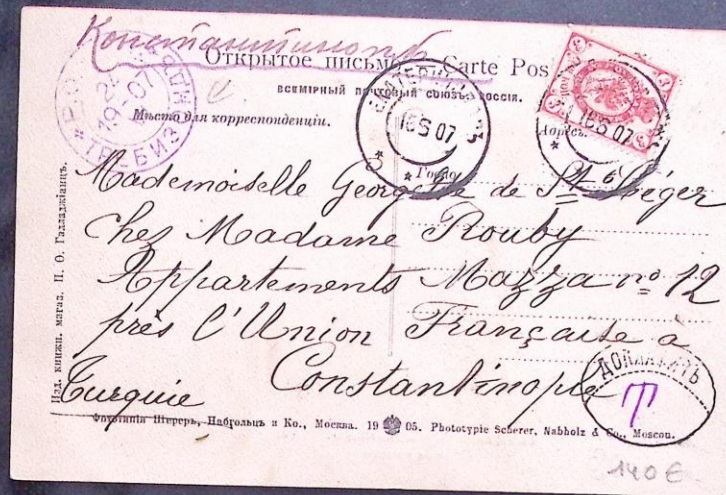 Константинополь
Открытое письмо. — Carte Pos
ВСЕМІРНЫЙ ПОЧТОВЫЙ СОЮЗЪ. РОССІЯ.
Мѣсто для корреспонденціи.
Адресъ.
19 07
ТРЕБИЗ
16 5 07
16 5 07
3
Mademoiselle Georgette de St Léger
chez Madame Rouby
Appartements Mazza nº 12
près l'Union Française à
Constantinople
Turquie
ДОПЛАТИТЬ
T
Изд. книжн. магаз. П. О. Галладжіанцъ.
Фототипія Шерерь, Набгольцъ и Ко., Москва. 19 05. Phototypie Scherer, Nabholz & Co., Moscou.
140 €